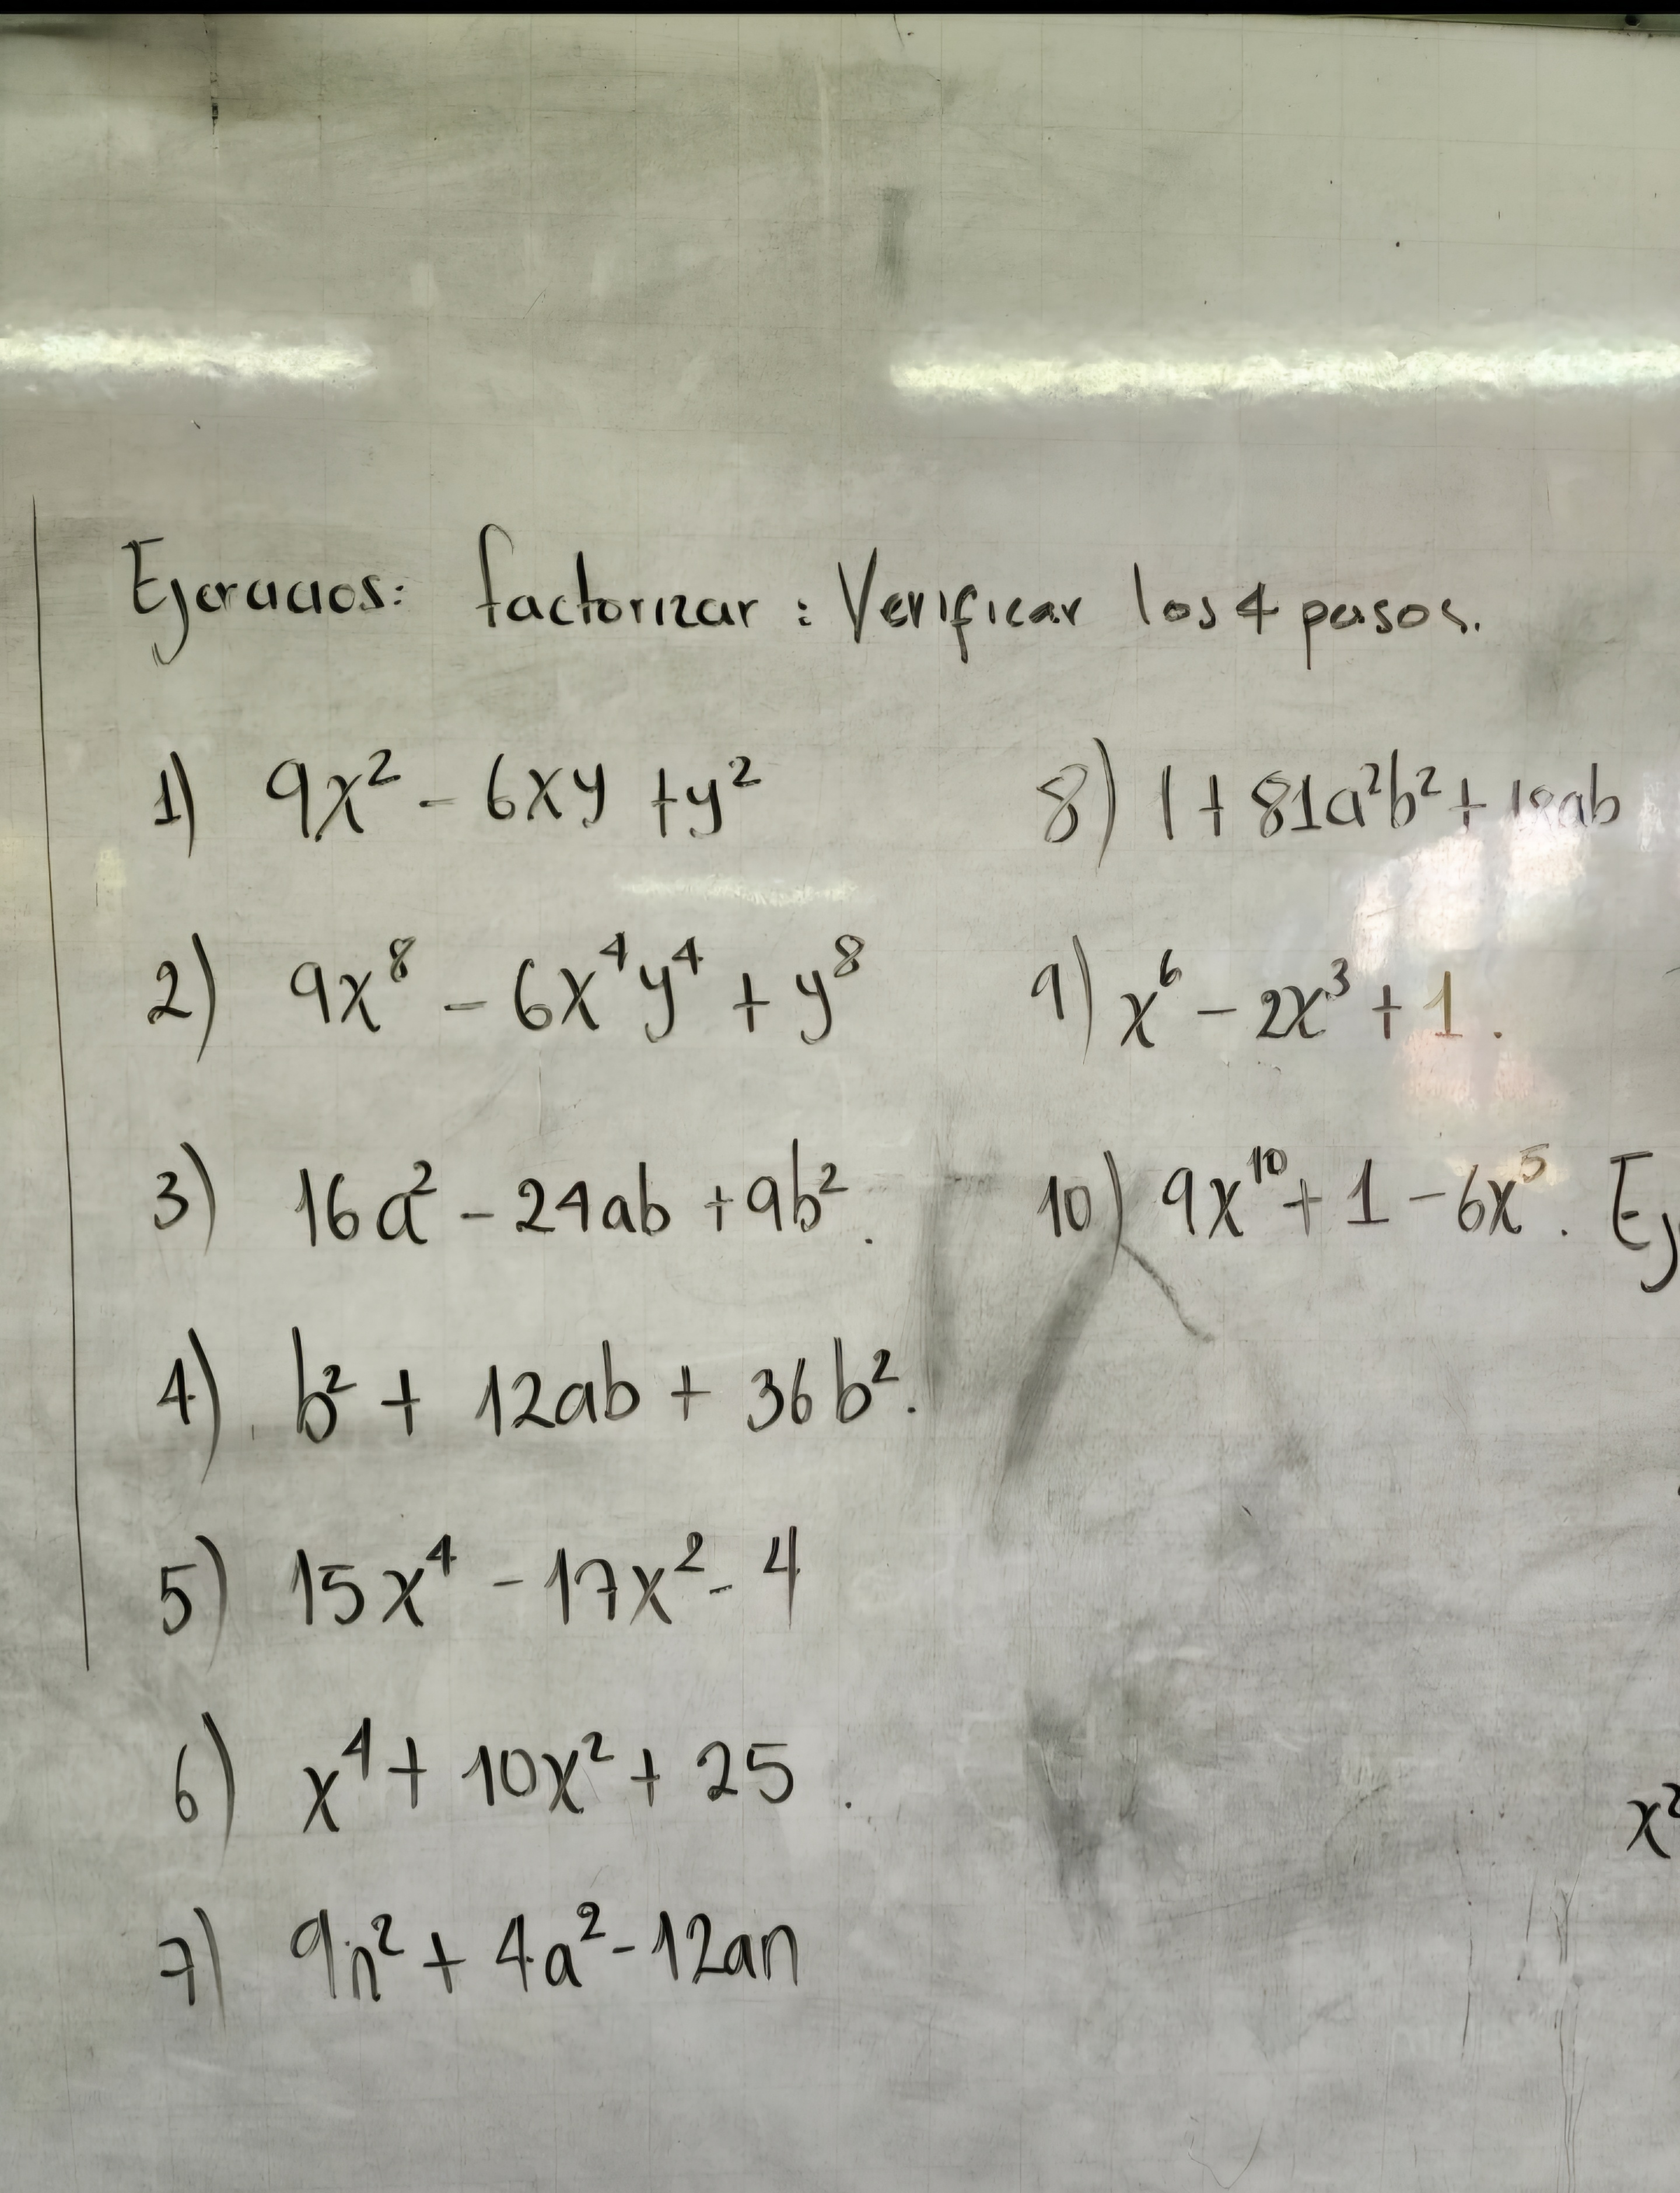 Ejercicios: factorizar: Verificar los 4 pasos.
1) 9x² - 6xy + y²
2) 9x⁸ - 6x⁴y⁴ + y⁸
3) 16a² - 24ab + 9b².
4) b² + 12ab + 36b².
5) 15x⁴ - 17x² - 4
6) x⁴ + 10x² + 25.
7) 9n² + 4a² - 12an
8) 1 + 81a²b² + 18ab
9) x⁶ - 2x³ + 1.
10) 9x¹⁰ + 1 - 6x⁵. Ej
x²